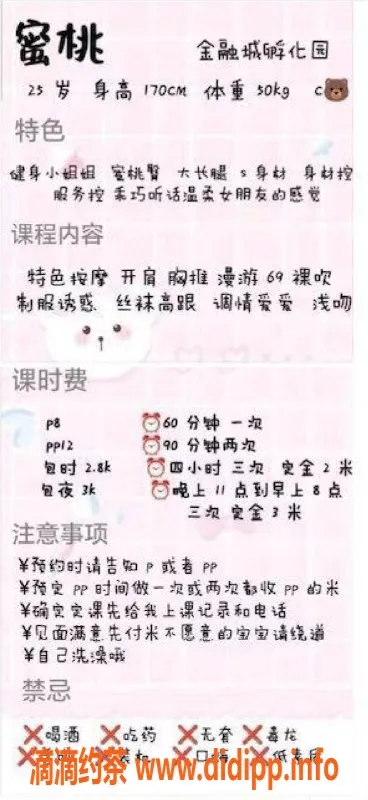 蜜桃 金融城孵化园
25 岁 身高 170CM 体重 50kg C
特色
健身小姐姐 蜜桃臀 大长腿 s身材 身材控
服务控 乖巧听话温柔女朋友的感觉
课程内容
特色按摩 开肩 胸推 漫游 69 裸吹
制服诱惑 丝袜高跟 调情爱爱 浅吻
课时费
P8 60 分钟 一次
PP12 90 分钟两次
包时 2.8k 四小时 三次 定金 2 米
包夜 3k 晚上 11 点到早上 8 点
三次 定金 3 米
注意事项
¥预约时请告知 P 或者 PP
¥预定 PP 时间做一次或两次都收 PP 的米
¥确定定课先给我上课记录和电话
¥见面满意先付米不愿意的宝宝请绕道
¥自己洗澡哦
禁忌
❌喝酒 ❌吃药 ❌无套 ❌毒龙
滴滴约茶 www.didipp.info